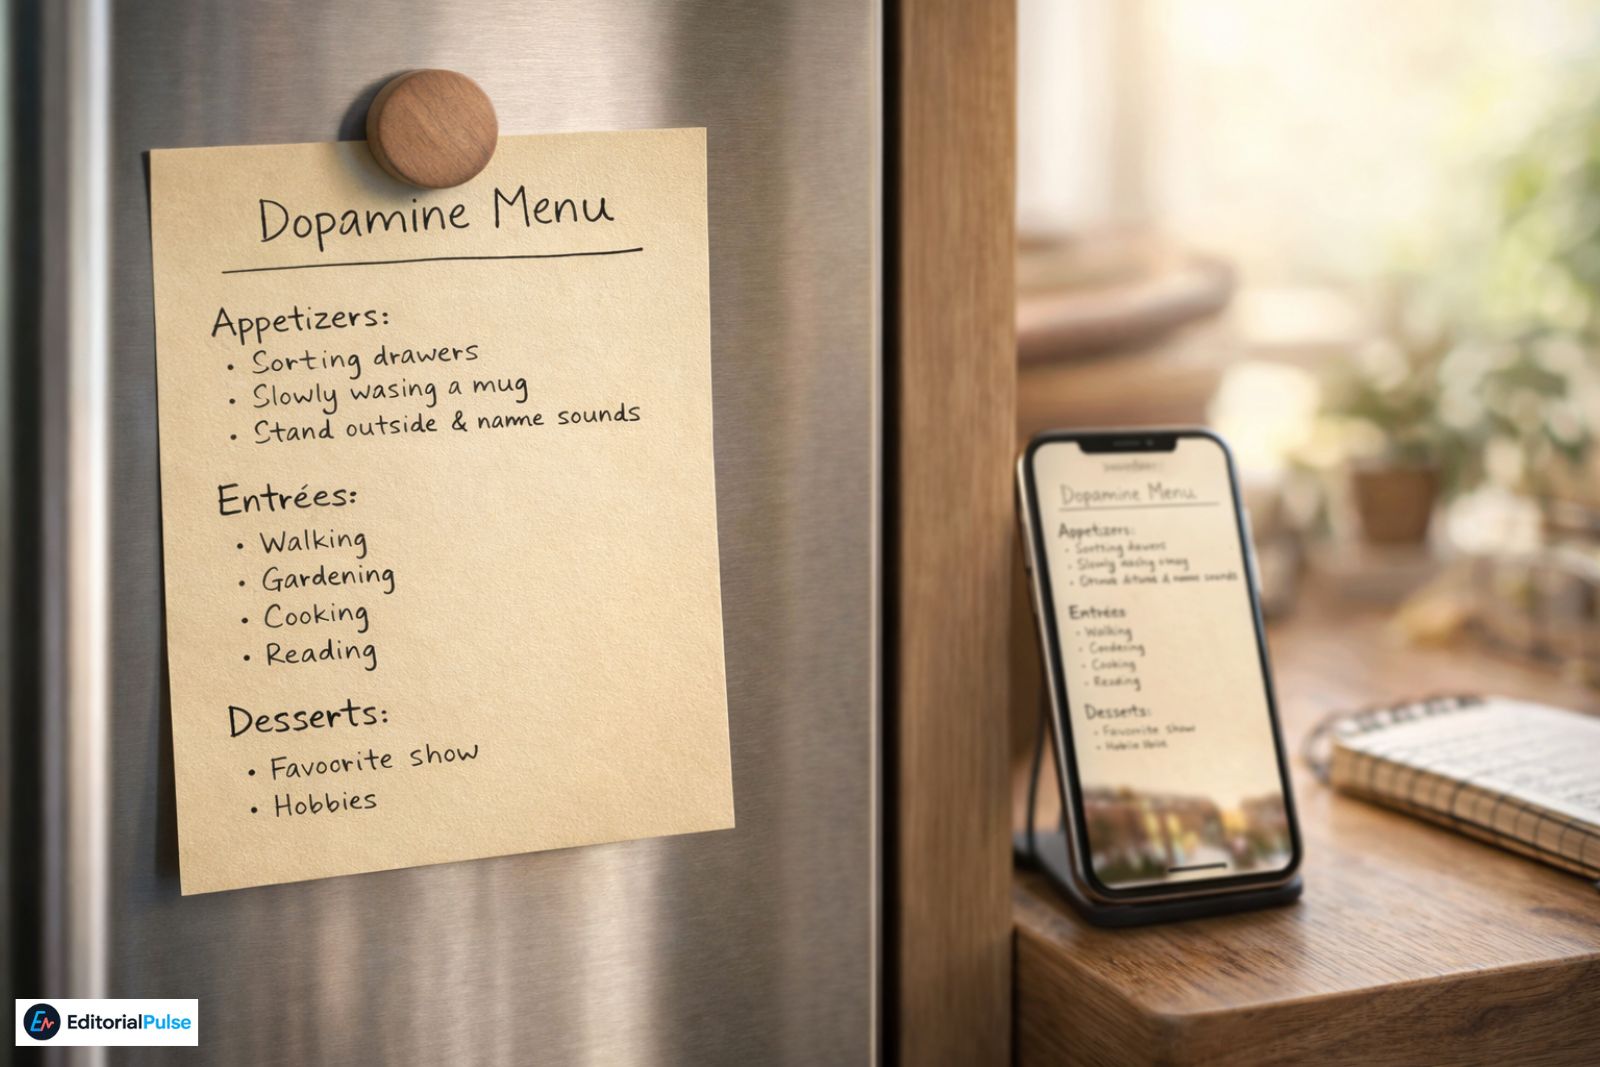 Dopamine Menu
Appetizers:
• Sorting drawers
• Slowly wasing a mug
• Stand outside & name sounds
Entrées:
• Walking
• Gardening
• Cooking
• Reading
Desserts:
• Favoorite show
• Hobbies
Dopamine Menu
Appetizers:
Entrées
- Walking
- Cooking
- Reading
Desserts:
EditorialPulse